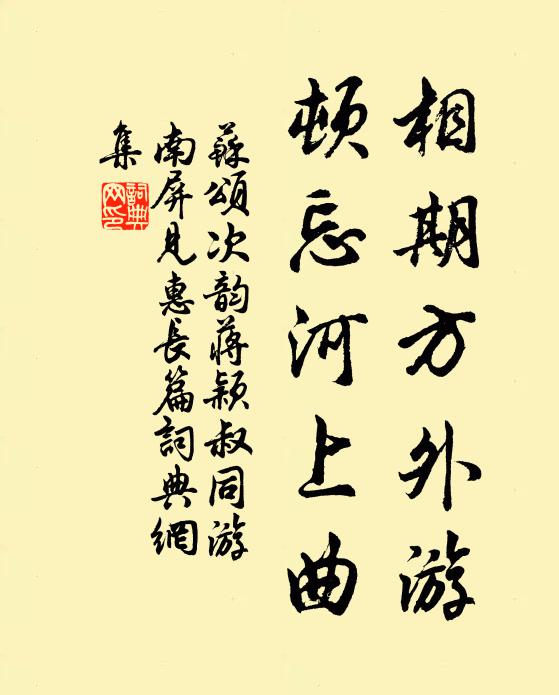 相期方外游
顿忘河上曲
蘇頌次韵蔣颖叔同游
南屏見惠長篇詞典網
集
詞典
网印